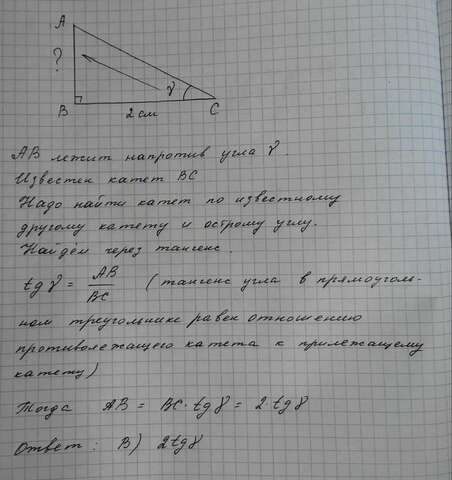 A
?
γ
B
2 см
C
AB лежит напротив угла γ.
Известен катет BC
Надо найти катет по известному
другому катету и острому углу.
Найдём через тангенс.
tg γ = AB/BC (тангенс угла в прямоуголь-
ном треугольнике равен отношению
противолежащего катета к прилежащему
катету)
Тогда AB = BC·tg γ = 2·tg γ
Ответ: В) 2tg γ